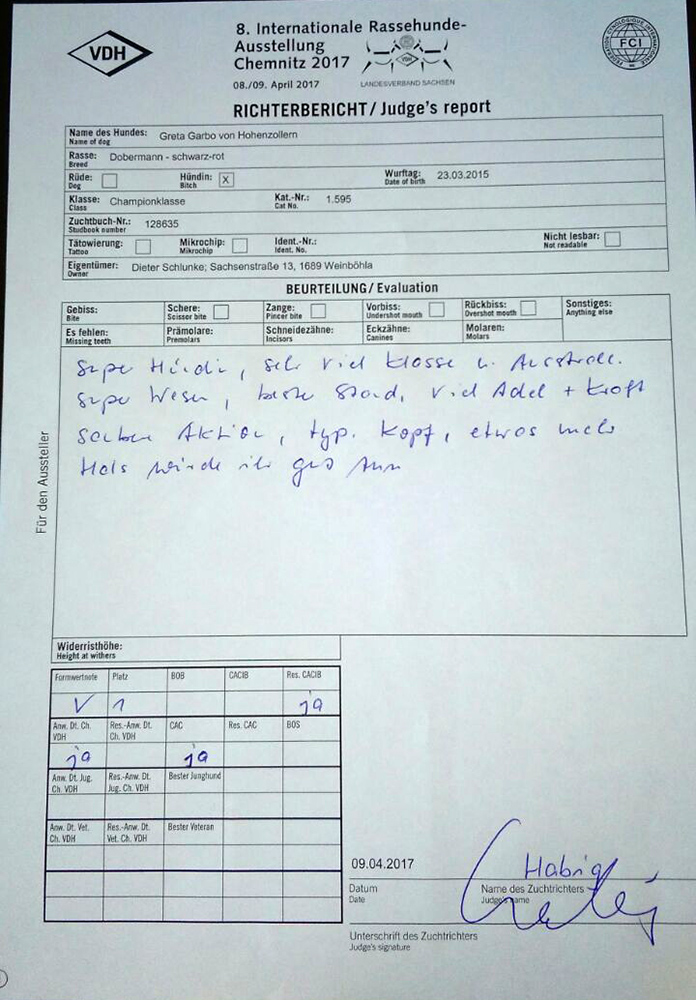 VDH
8. Internationale Rassehunde-
Ausstellung
Chemnitz 2017
08./09. April 2017
LANDESVERBAND SACHSEN
FCI
FEDERATION CYNOLOGIQUE INTERNATIONALE
RICHTERBERICHT / Judge's report
Name des Hundes: Greta Garbo von Hohenzollern
Name of dog
Rasse: Dobermann - schwarz-rot
Breed
Rüde: Hündin: X Wurftag: 23.03.2015
Dog Bitch Date of birth
Klasse: Championklasse Kat.-Nr.: 1.595
Class Cat No.
Zuchtbuch-Nr.: 128635
Studbook number
Tätowierung: Mikrochip: Ident.-Nr.: Nicht lesbar:
Tattoo Mikrochip Ident. No. Not readable
Eigentümer: Dieter Schlunke; Sachsenstraße 13, 1689 Weinböhla
Owner
BEURTEILUNG / Evaluation
Gebiss: Schere: Zange: Vorbiss: Rückbiss: Sonstiges:
Bite Scissor bite Pincer bite Undershot mouth Overshot mouth Anything else
Es fehlen: Prämolare: Schneidezähne: Eckzähne: Molaren:
Missing teeth Premolars Incisors Canines Molars
Super Hündin, sehr viel Klasse u. Ausstrahl.
Super Wesen, beste Stand, viel Adel + Kraft
Aktion, typ. Kopf, etwas mehr
Hals würde ihr gut
Für den Aussteller
Widerristhöhe:
Height at withers
Formwertnote Platz BOB CACIB Res. CACIB
V 1 ja
Anw. Dt. Ch. Res.-Anw. Dt. CAC Res. CAC BOS
VDH Ch. VDH
ja ja
Anw. Dt. Jug. Res.-Anw. Dt. Bester Junghund
Ch. VDH Jug. Ch. VDH
Anw. Dt. Vet. Res.-Anw. Dt. Bester Veteran
Ch. VDH Vet. Ch. VDH
09.04.2017 Habig
Datum Name des Zuchtrichters
Date Judge's name
Unterschrift des Zuchtrichters
Judge's signature